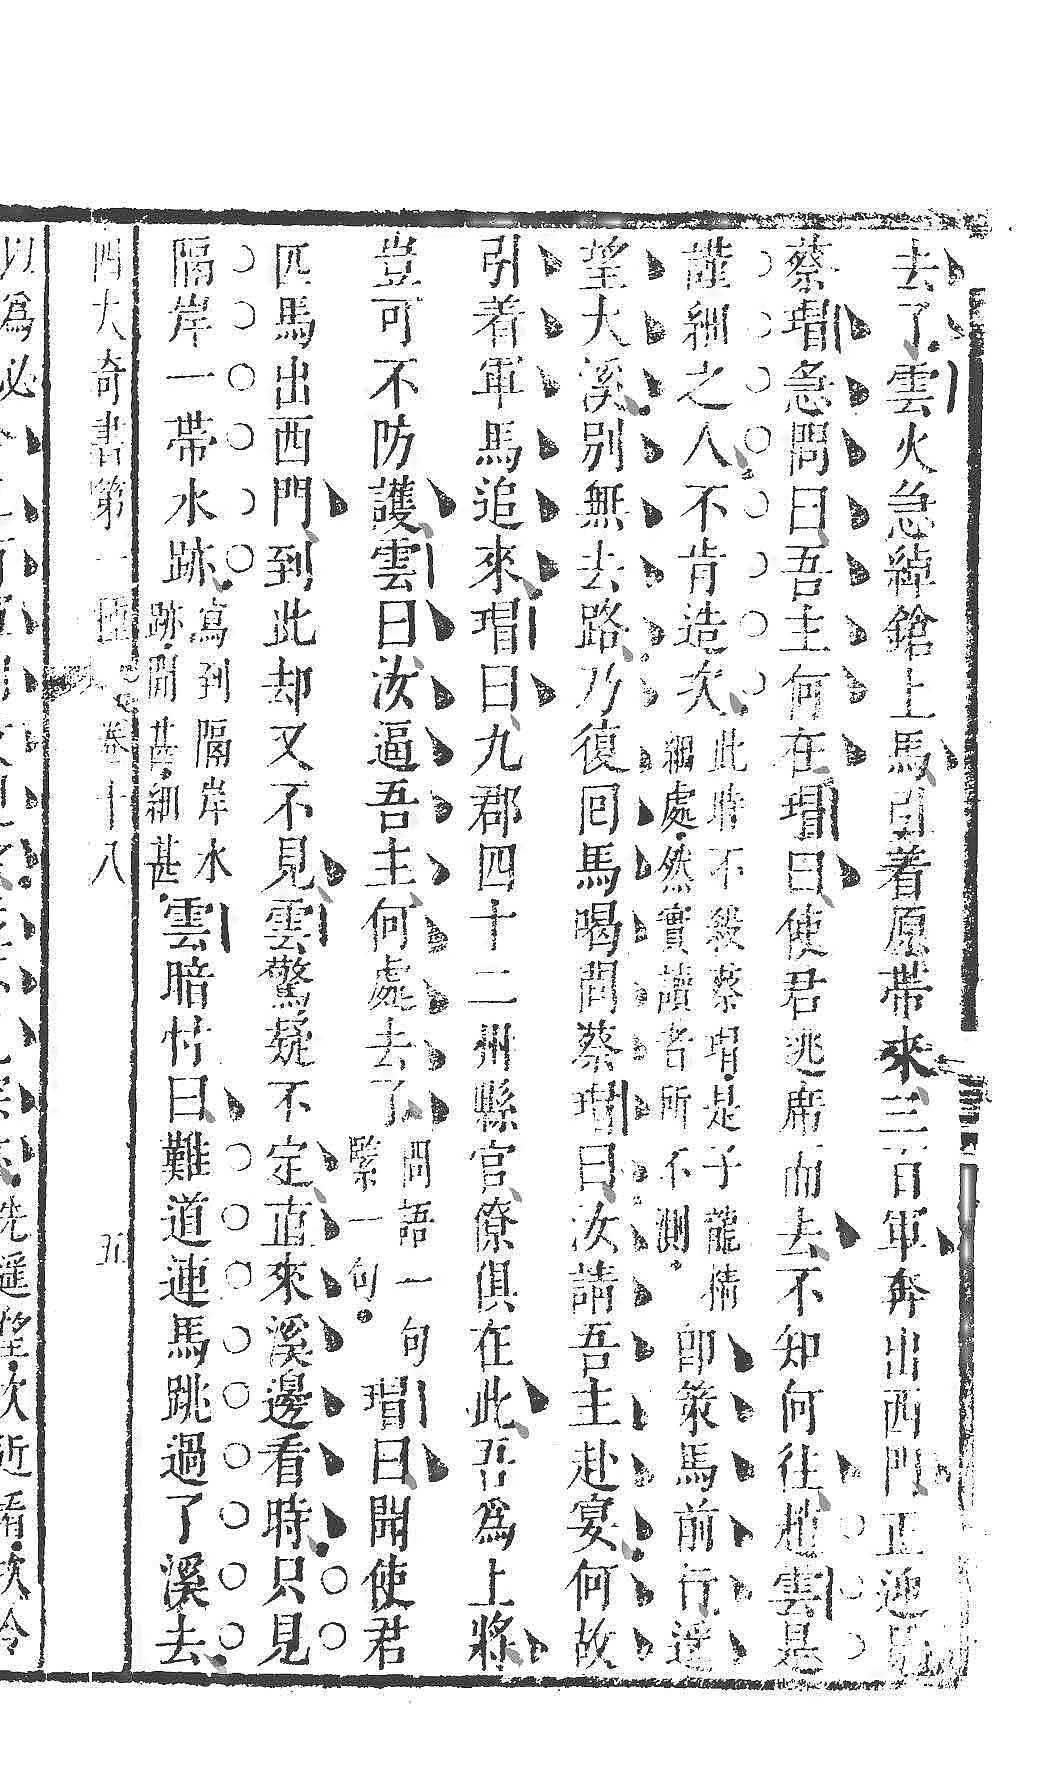 去了雲火急綽鎗上馬引着原帶來三百軍奔出西門正迎見
蔡瑁急問曰吾主何在瑁曰使君逃席而去不知何往趙雲是
謹細之人不肯造次此時不殺蔡瑁是子龍精細處然實讀者所不測即策馬前行遥
望大溪別無去路乃復回馬喝問蔡瑁曰汝請吾主赴宴何故
引着軍馬追來瑁曰九郡四十二州縣官僚俱在此吾爲上將
豈可不防護雲曰汝逼吾主何處去了問語一句緊一句瑁曰聞使君
匹馬出西門到此却又不見雲驚疑不定直來溪邊看時只見
隔岸一帶水跡寫到隔岸水跡閒甚細甚雲暗忖曰難道連馬跳過了溪去
四大奇書第一種 卷十八 五